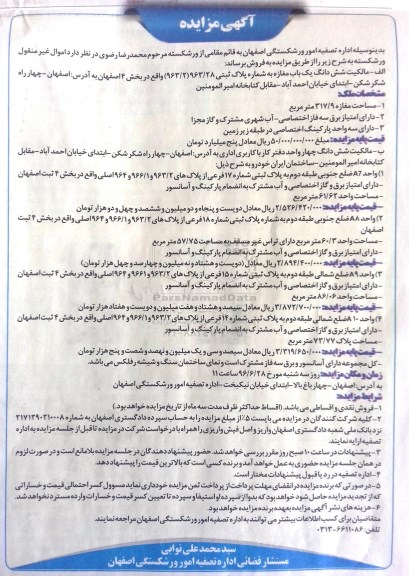 آگهی مزایده
بدینوسیله اداره تصفیه امور ورشکستگی اصفهان به قائم مقامی از ورشکسته مرحوم محمدرضا رضوی در نظر دارد اموال غیر منقول
ورشکسته به شرح زیر را از طریق مزایده به فروش برساند:
الف - مالکیت شش دانگ یک باب مغازه به شماره پلاک ثبتی ۹۶۳/۲۸ (۹۶۳/۲) واقع در بخش ۴ اصفهان به آدرس: اصفهان - چهار راه
شکرشکن - ابتدای خیابان احمد آباد - مقابل کتابخانه امیر المومنین
مشخصات ملک:
۱- مساحت مغازه ۳۱۷/۹ متر مربع
۲- دارای امتیاز برق سه فاز اختصاصی - آب شهری مشترک و گاز مجزا
۳- دارای سه واحد پارکینگ اختصاصی در طبقه زیرزمین
قیمت پایه مزایده: مبلغ ۵۰/۰۰۰/۰۰۰/۰۰۰ ریال معادل پنج میلیارد تومان
ب - مالکیت شش دانگ چهار واحد دفتر کار با کاربری اداری به آدرس: اصفهان - چهار راه شکر شکن - ابتدای خیابان احمد آباد - مقابل
کتابخانه امیر المومنین - ساختمان ایران خودرو به شرح ذیل:
۱) واحد ۸۷ ضلع جنوبی طبقه دوم به پلاک ثبتی شماره ۱۷ فرعی از پلاک های ۹۶۳/۲ و ۹۶۶/۱ و ۹۶۴ اصلی واقع در بخش ۴ ثبت اصفهان
- دارای امتیاز برق و گاز اختصاصی و آب مشترک به انضمام پارکینگ و آسانسور
- مساحت واحد ۶۱/۶۲ متر مربع
قیمت پایه مزایده: ۲/۵۲۶/۴۲۰/۰۰۰ ریال معادل دویست و پنجاه و دو میلیون و ششصد و چهل و دو هزار تومان
۲) واحد ۸۸ ضلع جنوبی طبقه دوم به شماره پلاک ثبتی شماره ۱۸ فرعی از پلاک های ۹۶۳/۲ و ۹۶۶/۱ و ۹۶۴ اصلی واقع در بخش ۴ ثبت
اصفهان
- مساحت واحد ۶۰/۳ متر مربع دارای تراس غیر مسقف به مساحت ۵۷/۷۵ متر مربع
- دارای امتیاز برق و گاز اختصاصی و آب مشترک به انضمام پارکینگ و آسانسور
قیمت پایه مزایده: ۲/۸۹۴/۴۰۰/۰۰۰ ریال معادل (دویست و هشتاد و نه میلیون و چهارصد و چهل هزار تومان)
۳) واحد ۸۹ ضلع شمالی طبقه دوم به پلاک ثبتی شماره ۱۵ فرعی از پلاک های ۹۶۳/۲ و ۹۶۶/۱ و ۹۶۴ اصلی واقع در بخش ۴ ثبت اصفهان
- دارای امتیاز برق و گاز اختصاصی و آب مشترک به انضمام پارکینگ و آسانسور
- مساحت واحد ۸۶/۰۶ متر مربع
قیمت پایه مزایده: ۳/۸۷۲/۷۰۰/۰۰۰ ریال معادل سیصد و هشتاد و هفت میلیون و دویست و هفتاد هزار تومان
۴) واحد ۱۰ ضلع شمالی طبقه دوم به پلاک ثبتی شماره ۱۴ فرعی از پلاک های ۹۶۳/۲ و ۹۶۶/۱ و ۹۶۴ اصلی واقع در بخش ۴ ثبت اصفهان
- دارای امتیاز برق و گاز اختصاصی و آب مشترک به انضمام پارکینگ و آسانسور
- مساحت پلاک ۷۳/۷۷ متر مربع
قیمت پایه مزایده: ۳/۳۱۹/۶۵۰/۰۰۰ ریال معادل سیصد و سی و یک میلیون و نهصد و شصت و پنج هزار تومان
- کل مجموعه دارای آسانسور و برق سه فاز مشترک است و نمای ساختمان سنگ و شیشه رفلکس می باشد.
زمان و مکان مزایده: روز سه شنبه مورخ ۹۶/۶/۲۸ ساعت ۱۱
به آدرس: اصفهان - چهار باغ بالا - ابتدای خیابان نیکبخت - اداره تصفیه امور ورشکستگی اصفهان
شرایط مزایده:
۱- فروش نقدی و اقساطی می باشد. (اقساط حداکثر ظرف مدت سه ماه از تاریخ مزایده خواهد بود.)
۲- کلیه شرکت کنندگان در مزایده می بایست ۵٪ از مبلغ مزایده را به حساب سپرده دادگستری اصفهان به شماره ۲۱۷۱۲۹۰۳۱۰۰۰۸
نزد بانک ملی شعبه دادگستری اصفهان واریز و اصل فیش واریزی را همراه با درخواست شرکت در مزایده تا قبل از جلسه مزایده به اداره
تصفیه ارایه نمایند.
۳- پیشنهادات در ساعت ۱۰ صبح روز مقرر بررسی خواهد شد. حضور پیشنهاد دهندگان در جلسه مزایده بلامانع است و در صورت لزوم
در همان جلسه مزایده حضوری به عمل خواهد آمد و برنده کسی است که بالاترین قیمت را پیشنهاد دهد.
۴- اداره تصفیه در رد یا قبول پیشنهادات مختار است.
۵- در صورتی که برنده مزایده در انقضای مهلت پرداخت از پرداخت ثمن مزایده خودداری نماید مسوول کسر احتمالی قیمت و خساراتی
که از تجدید مزایده حاصل شود خواهد بود که بدوا از سپرده او استیفا و سپرده تا تعیین کسر قیمت و خسارات وارده مسترد نخواهد شد.
۶- هزینه های نشر آگهی مزایده به عهده برنده مزایده خواهد بود.
متقاضیان برای کسب اطلاعات بیشتر می توانند به اداره تصفیه امور ورشکستگی اصفهان مراجعه نمایند.
تلفن: ۰۳۱۳-۶۶۱۱۰۸۶
سید محمد علی نوابی
مستشار قضائی اداره تصفیه امور ورشکستگی اصفهان
ParsNamadData